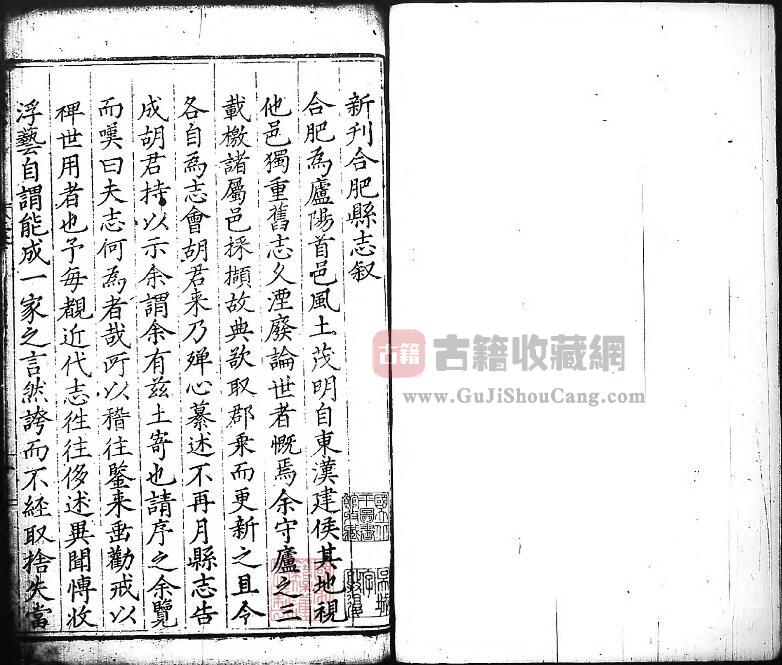 新刊合肥縣志叙
合肥為廬陽首邑風土茂明自東漢建侯其地視
他邑獨重舊志久湮廢論世者慨焉余守廬之三
載檄諸屬邑採擷故典欲取郡乘而更新之且令
各自為志會胡君来乃殫心纂述不再月縣志告
成胡君持以示余謂余有兹土寄也請序之余覽
而嘆曰夫志何為者哉所以稽往鑒来垂勸戒以
裨世用者也予每觀近代志徃往侈述異聞慱收
浮藝自謂能成一家之言然誇而不經取捨失當
古籍
古籍收藏網
www.GuJiShouCang.com